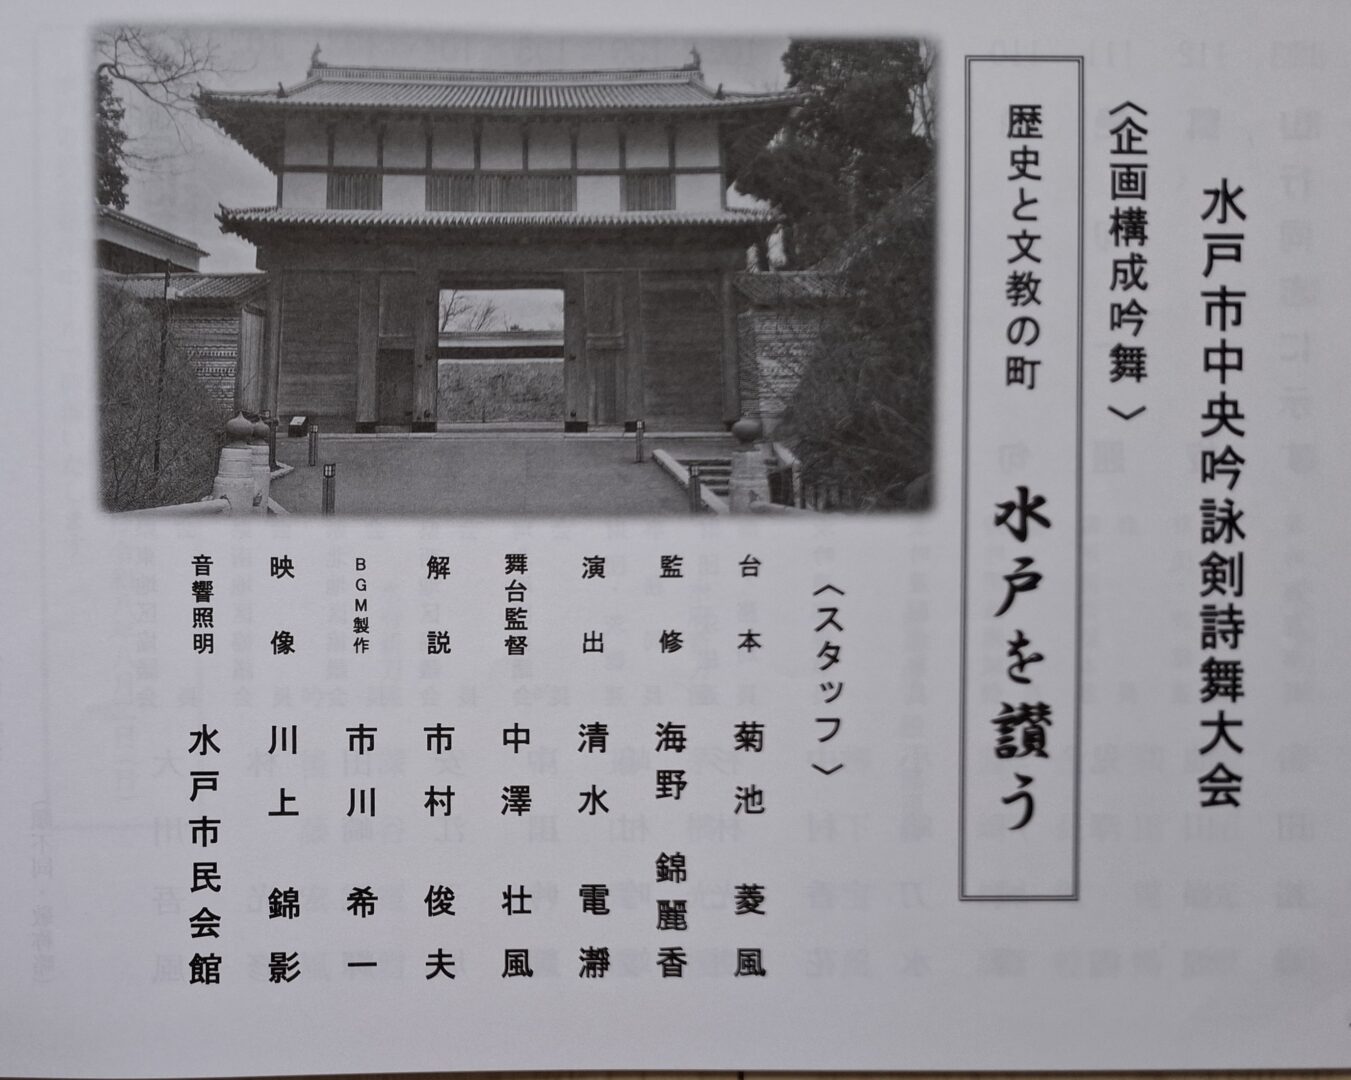 水戸市中央吟詠剣詩舞大会
〈企画構成吟舞 〉
歴史と文教の町 水戸を讃う
〈スタッフ〉
台本 菊池 菱風
監修 海野 錦麗香
演出 清水 電瀞
舞台監督 中澤 壮風
解説 市村 俊夫
BGM製作 市川 希一
映像 川上 錦影
音響照明 水戸市民会館